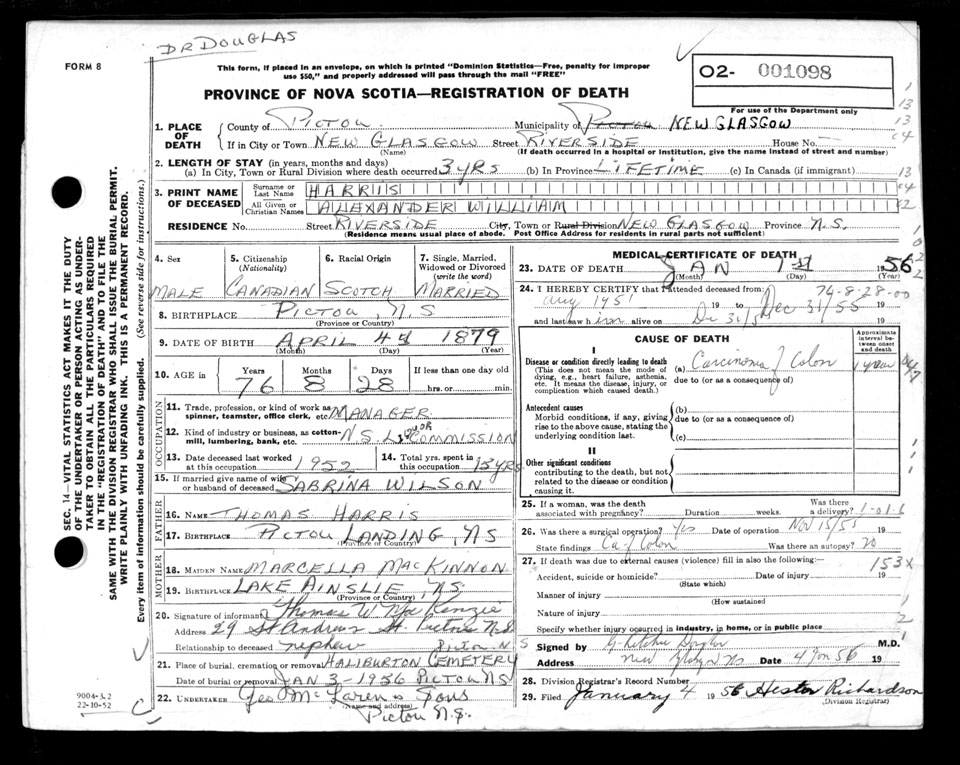 DR DOUGLAS
FORM 8
This form, if placed in an envelope, on which is printed "Dominion Statistics—Free, penalty for improper
use $50," and properly addressed will pass through the mail "FREE"
02- 001098
For use of the Department only
PROVINCE OF NOVA SCOTIA—REGISTRATION OF DEATH
1. PLACE OF DEATH
County of Pictou Municipality of Pictou NEW GLASGOW
If in City or Town NEW GLASGOW Street RIVERSIDE House No. —
(Name) (If death occurred in a hospital or institution, give the name instead of street and number)
2. LENGTH OF STAY (in years, months and days)
(a) In City, Town or Rural Division where death occurred 3 YRS (b) In Province LIFETIME (c) In Canada (if immigrant)
3. PRINT NAME OF DECEASED
Surname or Last Name HARRIS
All Given or Christian Names ALEXANDER WILLIAM
RESIDENCE No. Street RIVERSIDE City, Town or Rural Division NEW GLASGOW Province N.S.
(Residence means usual place of abode. Post Office Address for residents in rural parts not sufficient)
4. Sex MALE
5. Citizenship (Nationality) CANADIAN
6. Racial Origin SCOTCH
7. Single, Married, Widowed or Divorced (write the word) MARRIED
8. BIRTHPLACE PICTOU, N.S
(Province or Country)
9. DATE OF BIRTH APRIL 4th 1879
(Month) (Day) (Year)
10. AGE IN Years 76 Months 8 Days 28 If less than one day old hrs. or min.
OCCUPATION
11. Trade, profession, or kind of work as spinner, teamster, office clerk, etc. MANAGER
12. Kind of industry or business, as cotton-mill, lumbering, bank, etc. N.S. LIQUOR COMMISSION
13. Date deceased last worked at this occupation 1952
14. Total yrs. spent in this occupation 13 YRS
15. If married give name of wife or husband of deceased SABRINA WILSON
FATHER
16. NAME THOMAS HARRIS
17. BIRTHPLACE PICTOU LANDING, NS
(Province or Country)
MOTHER
18. MAIDEN NAME MARCELLA MACKINNON
19. BIRTHPLACE LAKE AINSLIE, NS.
(Province or Country)
20. Signature of informant Thomas W MacKenzie
Address 29 St Andrew St. Pictou N.S.
Relationship to deceased nephew Pictou N.S
21. Place of burial, cremation or removal HALIBURTON CEMETERY
Date of burial or removal JAN 3-1956 PICTOU NS
22. UNDERTAKER Geo McLaren & Sons
(Name and address)
Pictou N.S.
MEDICAL CERTIFICATE OF DEATH
23. DATE OF DEATH JAN 1st 1956
(Month) (Day) (Year)
24. I HEREBY CERTIFY that I attended deceased from 74-8-28-00
Aug 1951 19 to Dec 31/55 19
and last saw him alive on 19
CAUSE OF DEATH
Approximate interval between onset and death
I
Disease or condition directly leading to death
(This does not mean the mode of dying, e.g., heart failure, asthenia, etc. It means the disease, injury, or complication which caused death.)
(a) Carcinoma of Colon 1 year
due to (or as a consequence of)
Antecedent causes
Morbid conditions, if any, giving rise to the above cause, stating the underlying condition last.
(b)
due to (or as a consequence of)
(c)
II
Other significant conditions
contributing to the death, but not related to the disease or condition causing it.
25. If a woman, was the death associated with pregnancy? Duration weeks. Was there a delivery?
26. Was there a surgical operation? Yes Date of operation Nov 15/51 19
State findings Ca of Colon Was there an autopsy? no
27. If death was due to external causes (violence) fill in also the following:— 153X
Accident, suicide or homicide? Date of injury 19
(State which)
Manner of injury
(How sustained)
Nature of injury
Specify whether injury occurred in industry, in home, or in public place
Signed by M.D.
Address New Glasgow NS Date 4 Jan 56 19
28. Division Registrar's Record Number
29. Filed January 4 1956 Hester Richardson
(Division Registrar)
SEC. 14—VITAL STATISTICS ACT MAKES IT THE DUTY
OF THE UNDERTAKER OR PERSON ACTING AS UNDER-
TAKER TO OBTAIN ALL THE PARTICULARS REQUIRED
IN THE "REGISTRATION OF DEATH" AND TO FILE THE
SAME WITH THE DIVISION REGISTRAR WHO SHALL ISSUE THE BURIAL PERMIT.
WRITE PLAINLY WITH UNFADING INK. THIS IS A PERMANENT RECORD.
Every item of information should be carefully supplied. (See reverse side for instructions.)
9004-3.2
22-10-52